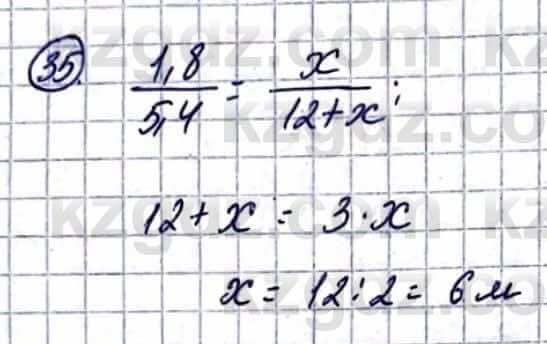 35. 1,8/5,4 = x/(12+x);
12 + x = 3·x
x = 12:2 = 6 м
kzgdz.com